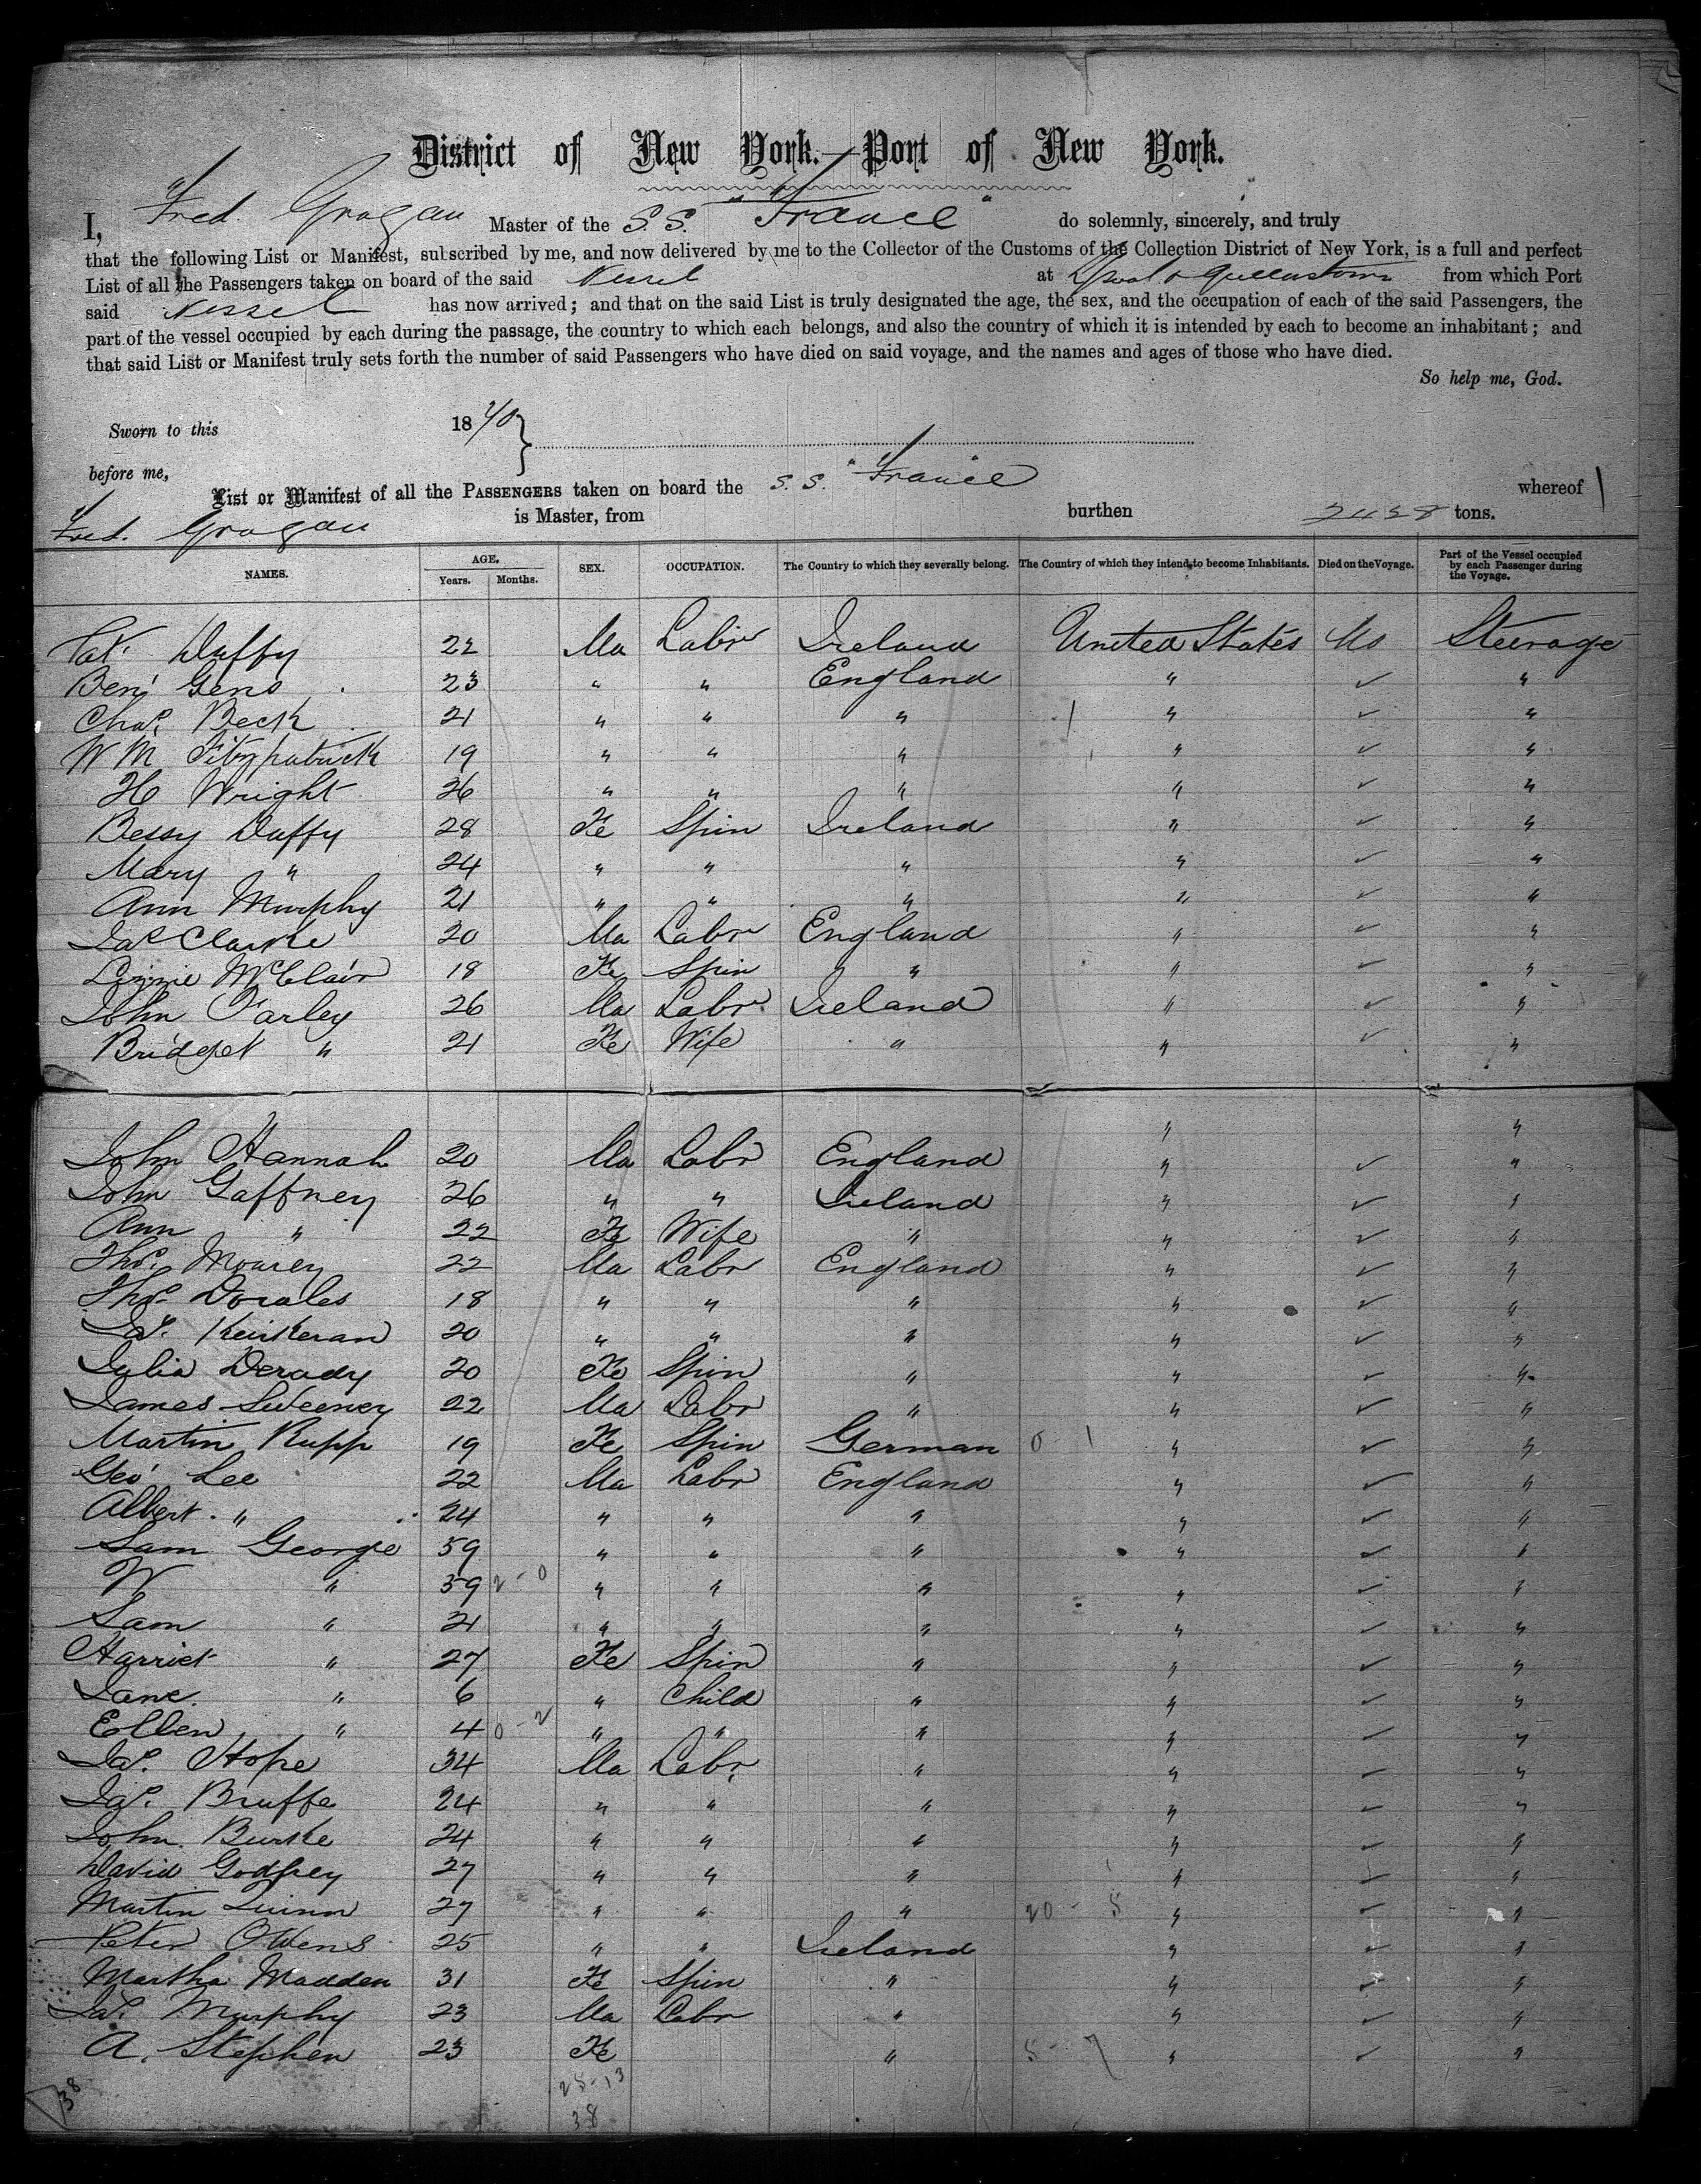 District of New York.—Port of New York.
I, Fred. Grogan Master of the S.S. "France" do solemnly, sincerely, and truly
that the following List or Manifest, subscribed by me, and now delivered by me to the Collector of the Customs of the Collection District of New York, is a full and perfect
List of all the Passengers taken on board of the said Vessel at L'pool & Queenstown from which Port
said Vessel has now arrived; and that on the said List is truly designated the age, the sex, and the occupation of each of the said Passengers, the
part of the vessel occupied by each during the passage, the country to which each belongs, and also the country of which it is intended by each to become an inhabitant; and
that said List or Manifest truly sets forth the number of said Passengers who have died on said voyage, and the names and ages of those who have died.
So help me, God.
Sworn to this 1870
before me,
List or Manifest of all the PASSENGERS taken on board the S.S. "France" whereof
Fred. Grogan is Master, from burthen 2428 tons.
NAMES. AGE. Years. Months. SEX. OCCUPATION. The Country to which they severally belong. The Country of which they intend to become Inhabitants. Died on the Voyage. Part of the Vessel occupied by each Passenger during the Voyage.
Pat. Duffy 22 Ma Labr Ireland United States No Steerage
Ben. Gens 23 " " England " ✓ "
Chas. Beck 21 " " " 1 " ✓ "
WM Fitzpatrick 19 " " " " ✓ "
H Wright 26 " " " " ✓ "
Bessy Duffy 28 Fe Spin Ireland " ✓ "
Mary " 24 " " " " ✓ "
Ann Murphy 21 " " " " ✓ "
Jas Clarke 20 Ma Labr England " ✓ "
Lizzie McClair 18 Fe Spin " " ✓ "
John Farley 26 Ma Labr Ireland " ✓ "
Bridget " 21 Fe Wife " " ✓ "
" "
John Hannah 20 Ma Labr England " ✓ "
John Gaffney 26 " " Ireland " ✓ "
Ann " 22 Fe Wife " " ✓ "
Thos. Mourey 22 Ma Labr England " ✓ "
Thos. Dorales 18 " " " " ✓ "
Jas. Keirkeran 20 " " " " ✓ "
Julia Derady 20 Fe Spin " " ✓ "
James Sweeney 22 Ma Labr " " ✓ "
Martin Rupp 19 Fe Spin German 0 - 1 " ✓ "
Geo Lee 22 Ma Labr England " ✓ "
Albert " 24 " " " " ✓ "
Sam George 59 " " " " ✓ "
W " 39 2 - 0 " " " " ✓ "
Sam " 21 " " " " ✓ "
Harriet " 27 Fe Spin " " ✓ "
Jane " 6 " Child " " ✓ "
Ellen " 4 0 - 2 " " " " ✓ "
Jas. Hope 34 Ma Labr " " ✓ "
Jas. Bruffe 24 " " " " ✓ "
John Burke 24 " " " " ✓ "
David Godfrey 27 " " " " ✓ "
Martin Quinn 27 " " " 20 - 5 " ✓ "
Peter Owens 25 " " Ireland " ✓ "
Martha Madden 31 Fe Spin " " ✓ "
Jas. Murphy 23 Ma Labr " " ✓ "
A. Stephen 23 Fe " 5 - 7 " ✓ "
38 25-13
38